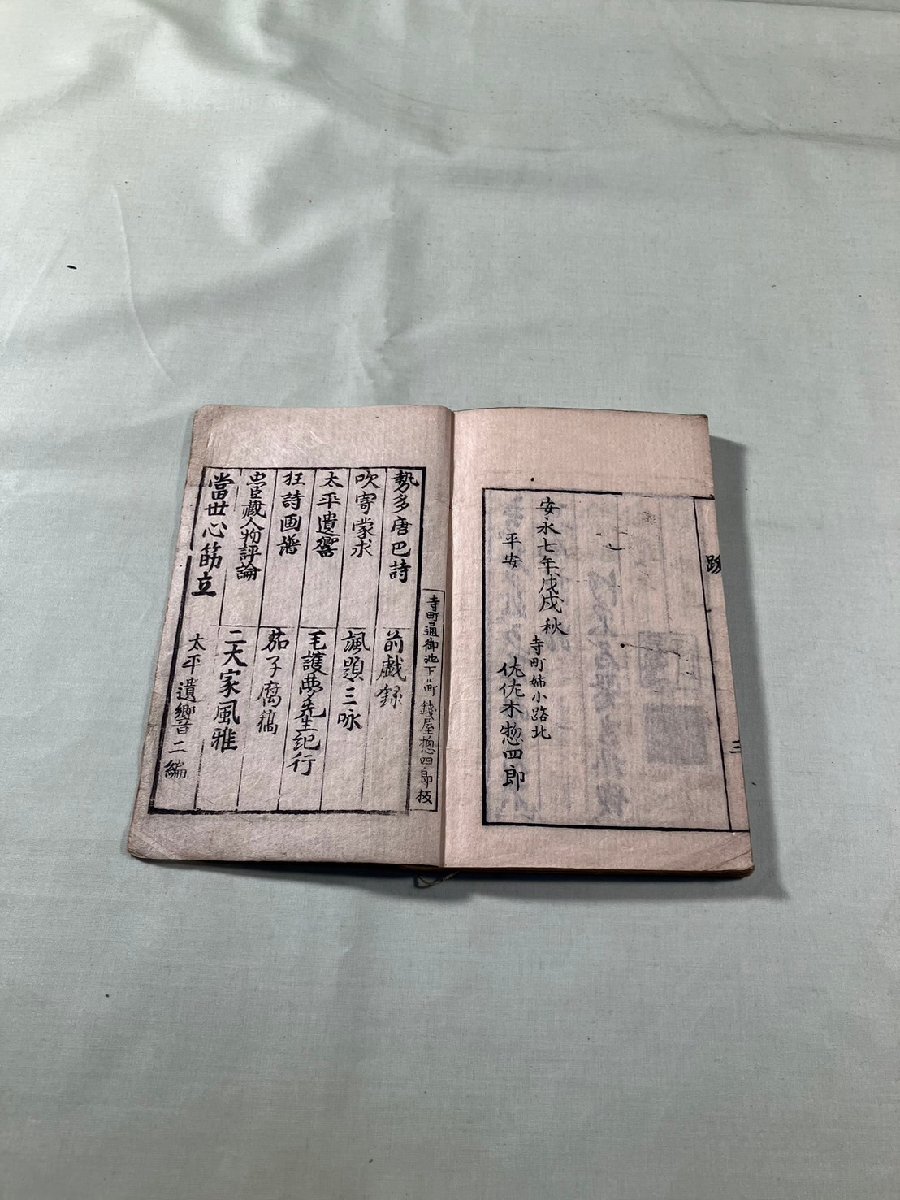 跋
三
安永七年戊戌秋
平安
寺町姉小路北
佐佐木惣四郎
寺町通御池下ル町 銭屋惣四郎板
勢多唐巴詩
前戯録
吹寄蒙求
諷題三咏
太平遺響
毛護夢先生紀行
狂詩画譜
茄子腐藁
忠臣蔵人物評論
二大家風雅
當世心筋立
太平遺響二編